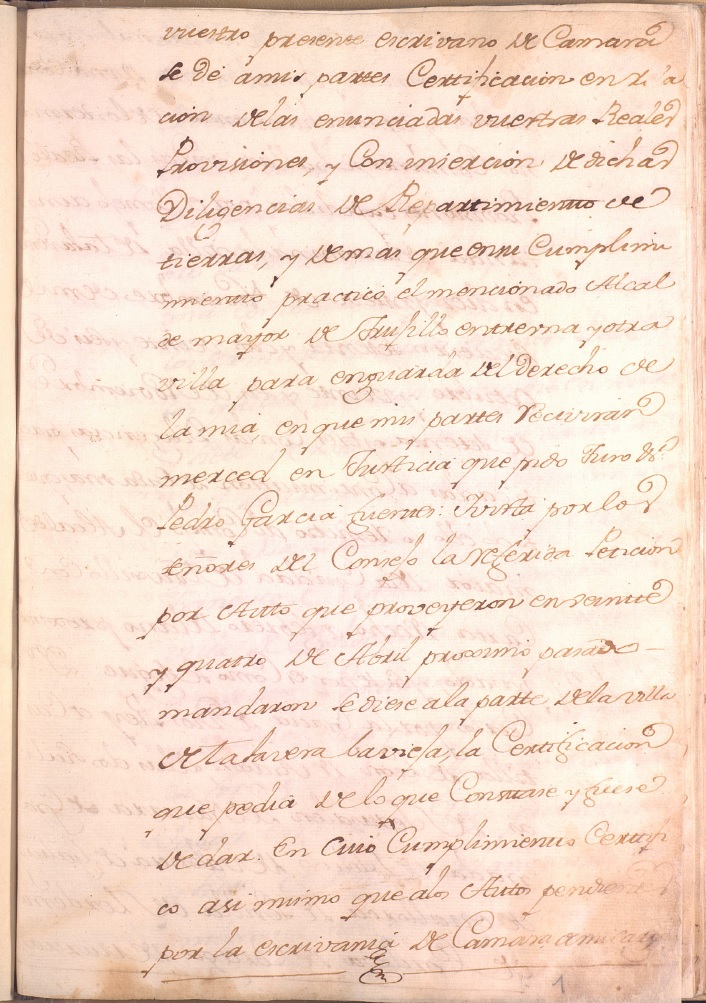 vuestro presente escrivano de Camara
se dé a mis partes Certificacion en rela
cion de las enunciadas vuestras Reales
Provisiones, y Con insercion de dichas
Diligencias de Repartimiento de
tierras, y demas que en su Cumplim
miento practicó el mencionado Alcal
de mayor de Trujillo en terna y otra
villa para en guarda del derecho de
la mia en que mis partes recivirán
merced en Justicia que pido Juro Dn.
Pedro Garcia fuentes: Vista por los
señores del Consejo la referida Peticion
por Auto que proveyeron en veinte
y quatro de Abril proximo pasado
mandaron se diese a la parte, de la villa
de talavera la vieja, la Certificacion
que pedia de lo que Constase y fuese
de dar. En cuio Cumplimiento Certifi
co asi mismo que a los Autos pendientes
por la escrivania de Camara a mi cargo
1